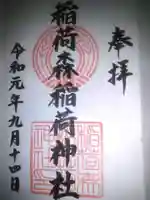 奉拝
稲荷森稲荷神社
令和元年九月十四日